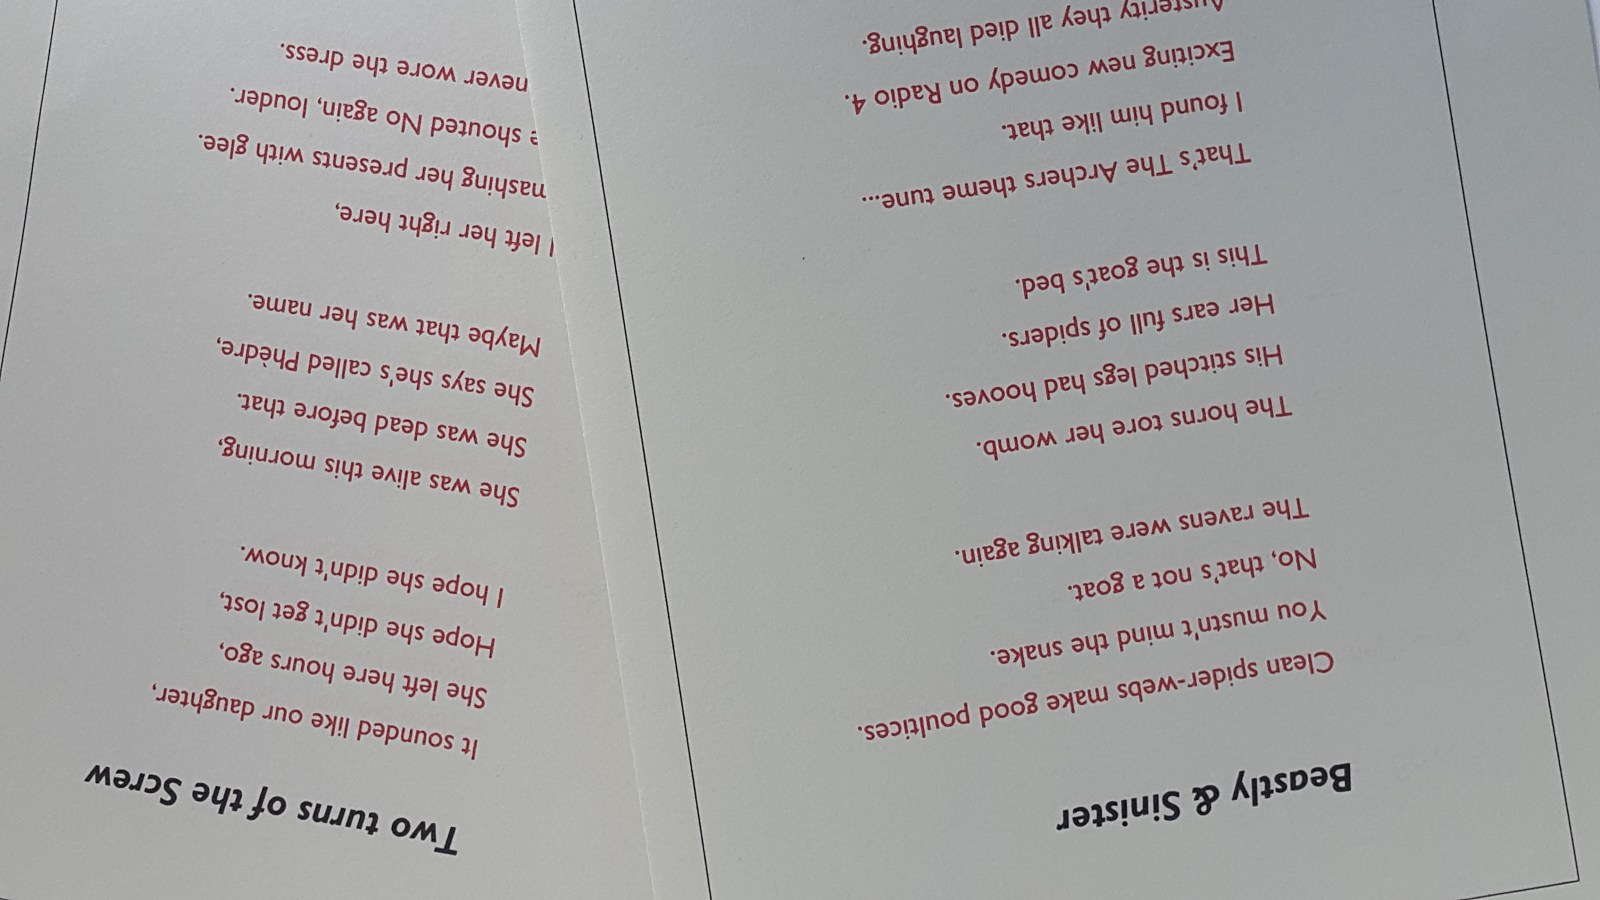 Beastly & Sinister
Clean spider-webs make good poultices.
You mustn't mind the snake.
No, that's not a goat.
The ravens were talking again.
The horns tore her womb.
His stitched legs had hooves.
Her ears full of spiders.
This is the goat's bed.
That's The Archers theme tune...
I found him like that.
Exciting new comedy on Radio 4.
Austerity they all died laughing.
Two turns of the Screw
It sounded like our daughter,
She left here hours ago,
Hope she didn't get lost,
I hope she didn't know.
She was alive this morning,
She was dead before that.
She says she's called Phèdre,
Maybe that was her name.
I left her right here,
mashing her presents with glee.
e shouted No again, louder.
never wore the dress.